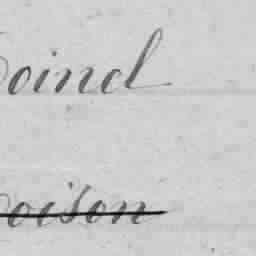 oind
oison